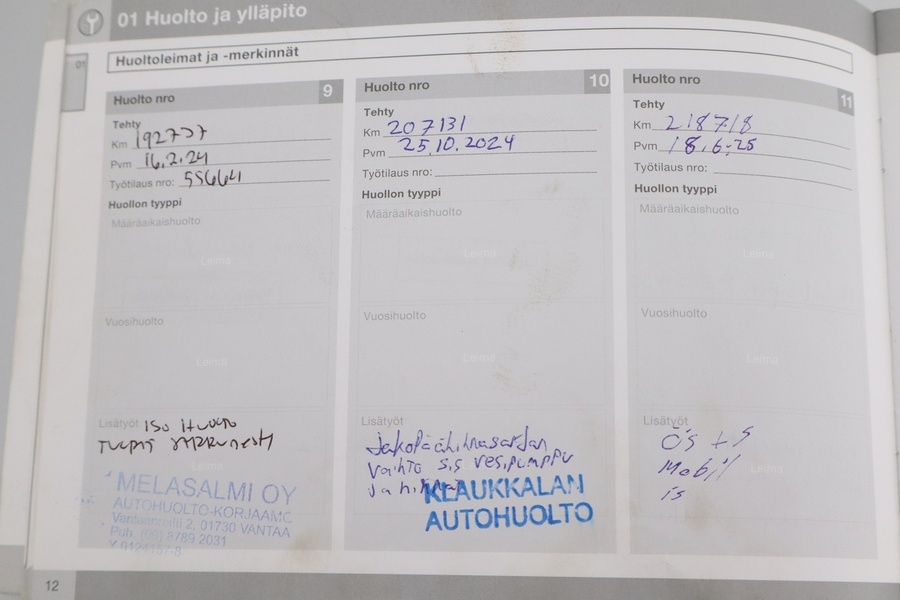 01 Huolto ja ylläpito
01
Huoltoleimat ja -merkinnät
Huolto nro 9
Tehty
Km 192737
Pvm 16.2.24
Työtilaus nro: 55664
Huollon tyyppi
Määräaikaishuolto
Leima
Vuosihuolto
Leima
Lisätyöt Iso Huolto
Leima
MELASALMI OY
AUTOHUOLTO-KORJAAMO
2, 01730 VANTAA
Puh. (09) 8789 2031
Huolto nro 10
Tehty
Km 207131
Pvm 25.10.2024
Työtilaus nro:
Huollon tyyppi
Määräaikaishuolto
Leima
Vuosihuolto
Leima
Lisätyöt
Jakopäähihnasarjan
vaihto sis vesipumppu
ja hihna
KLAUKKALAN
AUTOHUOLTO
Huolto nro 11
Tehty
Km 218718
Pvm 18.6.25
Työtilaus nro:
Huollon tyyppi
Määräaikaishuolto
Leima
Vuosihuolto
Leima
Lisätyöt
Ös + S
Mobil
Leima
is
12